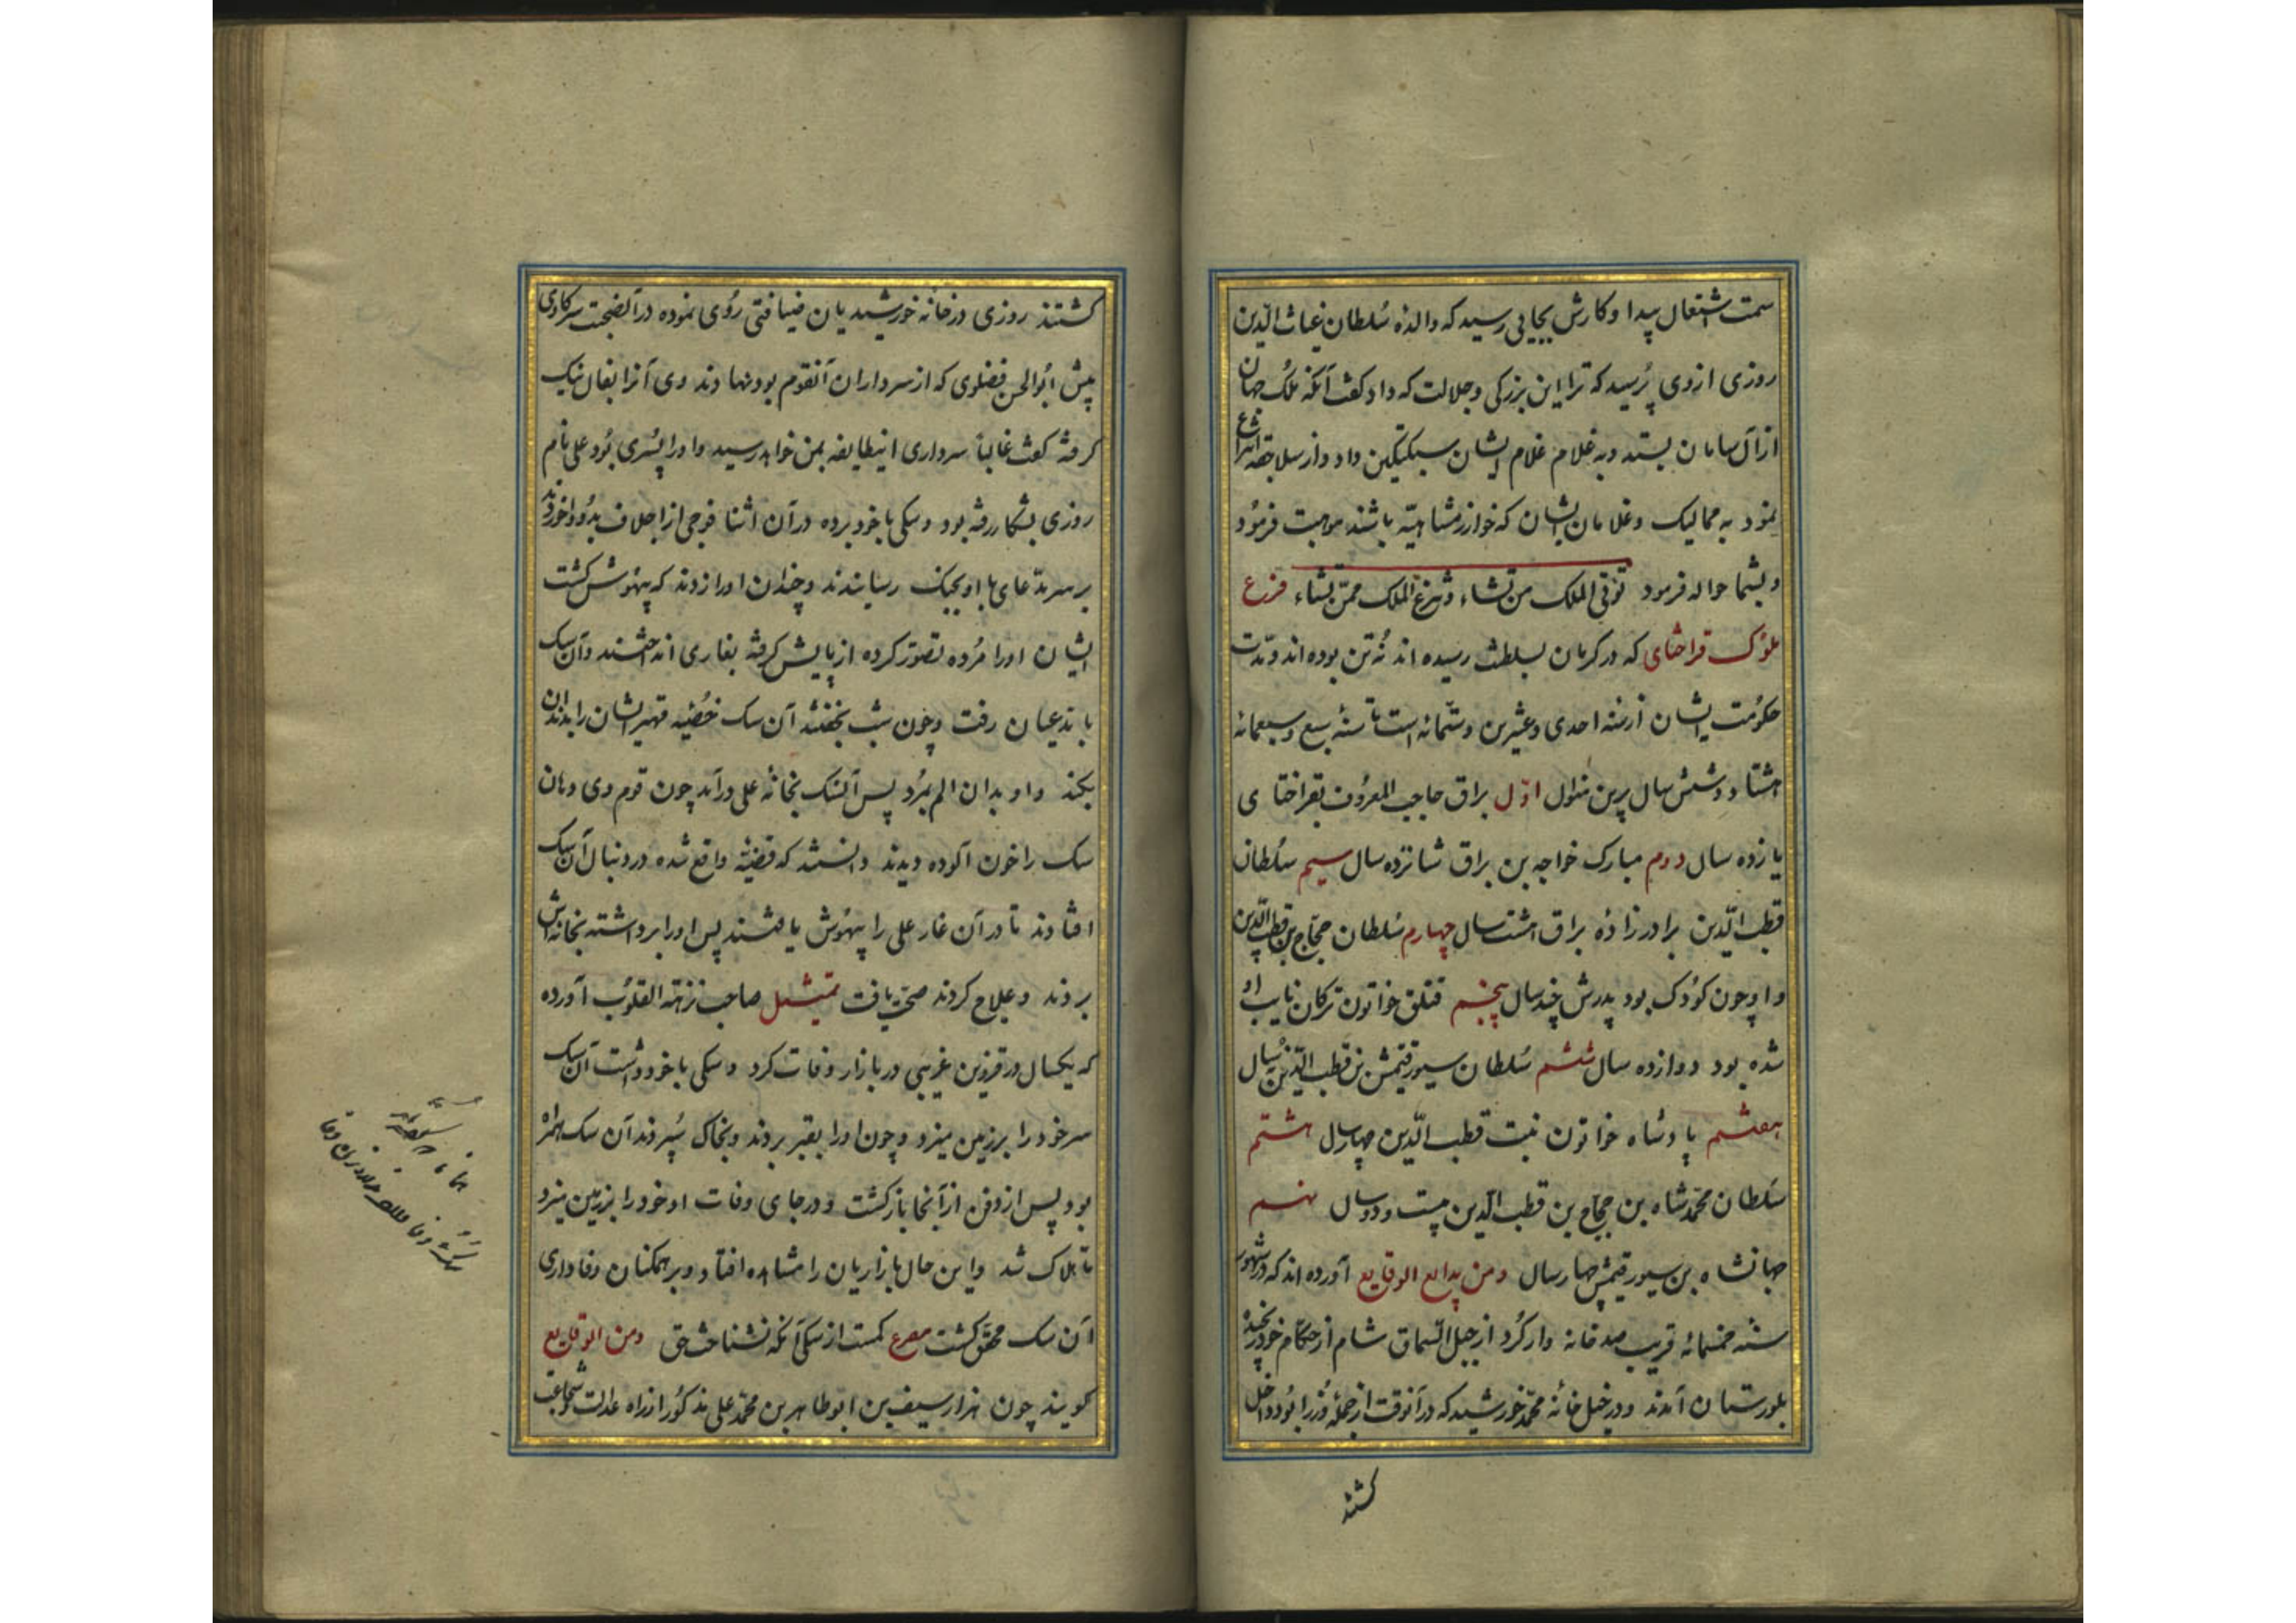 سمت اشتغال پیدا و کارش بجایی رسید که والدهٔ سُلطان غیاث الدّین
روزی ازوی پُرسید که ترا این بزرکی و جلالت که داد کفت آنکه مُلک جهان
از آل سامان بستد و به غلام غلام ایشان سبکتکین داد و از سلاجقه انتزاع
نمود به ممالیک و غلامان ایشان که خوارزمشاهیّه باشند موهبت فرمُود
و بشما حواله فرمود تؤتی الملک من تشاء و تنزع الملک ممّن تشاء فرع
ملوک قراختای که در کرمان بسلطنت رسیده اند نُه تن بوده اند و مدّت
حکوُمت ایشان از سنه احدی و عشرین و ستّمائه است تا سنهٔ سبع و سبعمائه
هشتاد و شش سال برین منوال اوّل براق حاجب المعرُوف بقراختا ی
یازده سال دوم مبارک خواجه بن براق شانزده سال سیم سُلطان
قطب الدّین برادرزادهٔ براق هشت سال چهارم سُلطان حجّاج بن قطب الدّین
و او چون کوُدک بود پدرش چند سال پنجم قتلق خواتون ترکان نایب اوُ
شده بود دوازده سال ششم سُلطان سیورقتمش بن قطب الدّین نُه سال
هفتم پادشاه خواتون بنت قطب الدّین چهار سال هشتم
سُلطان محمّد شاه بن حجّاج بن قطب الدّین بیست و دو سال نهم
جهانشاه بن سیورقتمش چهار سال و من بدایع الوقایع آورده اند که در شهور
سنه خمسمائه قریب صد خانه وار کُرد از جبل السّماق شام از حکّام خود رنجیده
بلورستان آمدند و در خیل خانهٔ محمّد خورشید که در آنوقت از جملهٔ وُزرا بُود داخل
کشتند
کشتند روزی در خانهٔ خورشیدیان ضیافتی رُوی نموده در آن صحبت سر کاوی
پیش ابُوالحسن فضلوی که از سرداران آنقوم بود نهادند وی آنرا بفال نیک
کرفته کفت غالباً سرداری اینطایفه بمن خواهد رسید و او را پسُری بُود علی نام
روزی بشکار رفته بود و سکی با خود برده در آن اثنا فوجی از اجلاف بدُو واخوردند
بر سر مدّعای با او بجنک رسانیدند و چندان او را زدند که بیهُوش کشت
ایشان او را مُرده تصوّر کرده از پایش کرفته بغاری انداختند و آن سک
با مدّعیان رفت و چون شب بخفتند آن سک خُصیه مهتر ایشان را بدندان
بکند و او بدان الم بمُرد پس آن سک بخانهٔ علی درآمد چون قوم وی دهان
سک را خون آلوده دیدند دانستند که قضیّه واقع شده در دنبال آن سک
افتادند تا در آن غار علی را بیهُوش یافتند پس او را برداشته بخانه اش
بردند و علاج کردند صحّت یافت تمثیل صاحب نزهة القلوُب آورده
که یکسال در قزوین غریبی در بازار وفات کرد و سکی با خود داشت آن سک
سر خود را بر زمین میزد و چون او را بقبر بردند و بخاک سُپردند آن سک همراه
بود پس از دفن از آنجا بازکشت و در جای وفات او خود را بر زمین میزد
تا هلاک شد و این حال بازاریان را مشاهده افتاد و بر همکنان وفاداری
آن سک محقّق کشت مصرع کمست از سکی آنکه نشناخت حق و من الوقایع
کویند چون هزارسیف بن ابوطاهر بن محمّد علی مذکوُر از راه عدالت و شجاعت